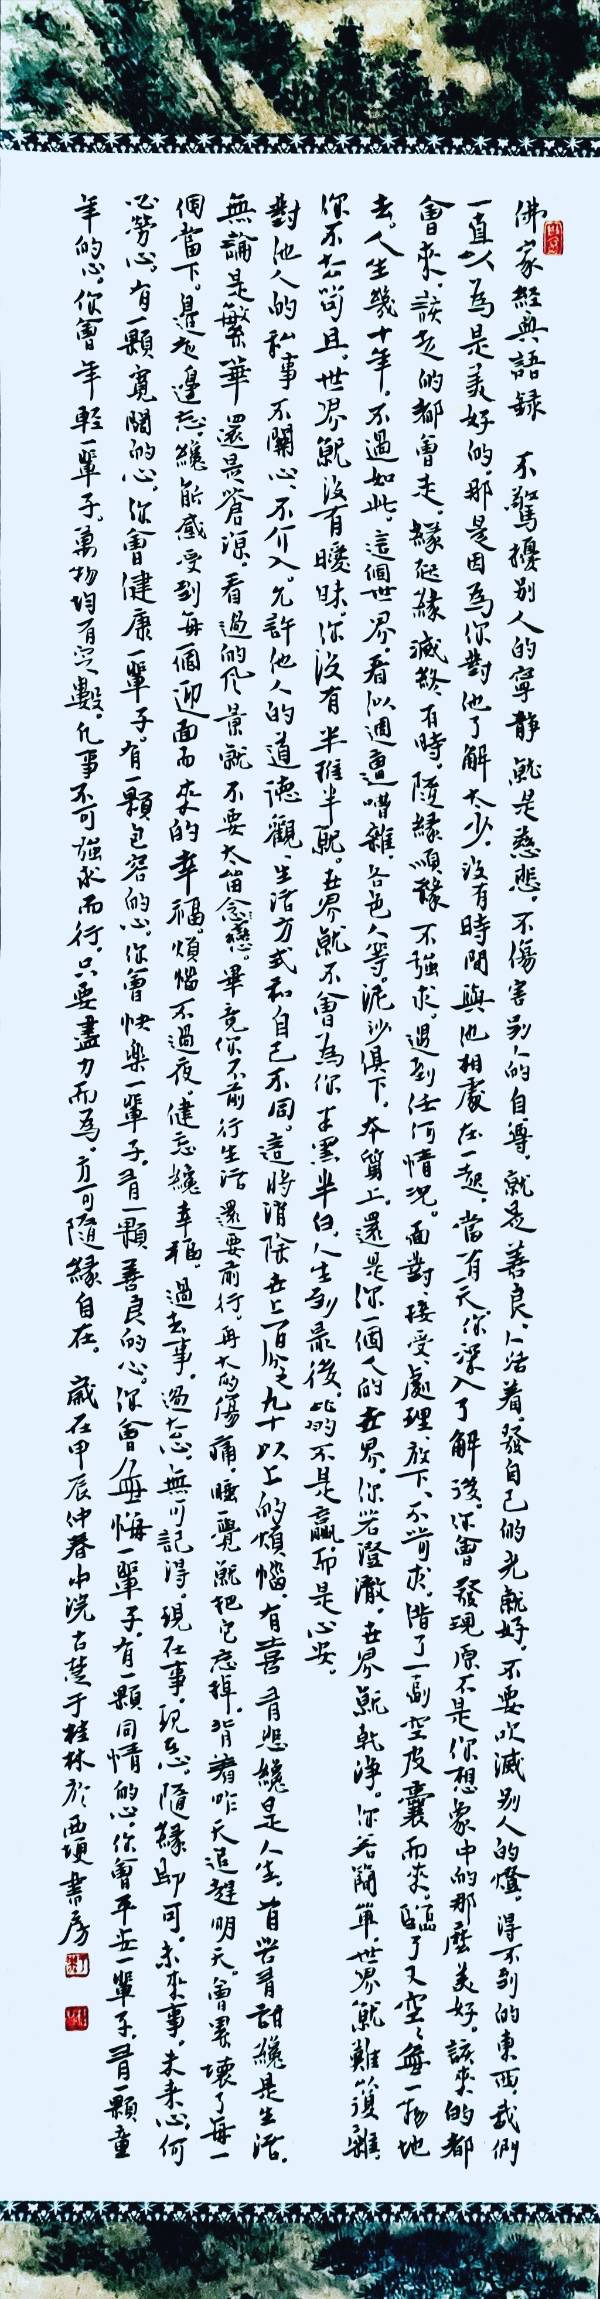 佛家經典語録　不驚擾別人的寧静就是慈悲。不傷害别人的自尊，就是善良。人活着，發自己的光就好，不要吹滅别人的燈。得不到的東西，我們
一直以為是美好的，那是因為你對他了解太少，沒有時間與他相處在一起。當有一天，你深入了解後，你會發現原不是你想象中的那麽美好。該來的都
會來，該走的都會走，緣起緣滅終有時，隨緣順緣不強求。遇到任何情况。面對、接受、處理、放下、不苛求，借了一副空皮囊而來，臨了又空空無一物地
去。人生幾十年，不過如此。這個世界，看似週遭嘈雜，各色人等，泥沙俱下，本質上，還是你一個人的世界。你若澄澈，世界就乾净。你若簡單，世界就難以復雜，
你不去苟且，世界就沒有曖昧。你沒有半推半就。世界就不會為你半黑半白，人生到最後，比的不是贏，而是心安。
對他人的私事不關心、不介入。允許他人的道德觀、生活方式和自己不同。這將消除世上百分之九十以上的煩惱，有喜有悲纔是人生。有苦有甜纔是生活。
無論是繁華還是蒼凉，看過的風景就不要太留念戀。畢竟你不前行生活還要前行。再大的傷痛，睡一覺就把它忘掉。背着昨天追趕明天。會累壞了每一
個當下。邊走邊忘，纔能感受到每一個迎面而來的幸福。煩惱不過夜，健忘纔幸福。過去事，過去心，無可記得。現在事，現在心，隨緣即可。未來事，未來心，何
必勞心。有一顆寬闊的心，你會健康一輩子。有一顆包容的心，你會快樂一輩子，有一顆善良的心。你會無悔一輩子，有一顆同情的心，你會平安一輩子，有一顆童
年的心。你會年輕一輩子。萬物均有定數。凡事不可強求而行，只要盡力而為，方可隨緣自在。　歲在甲辰仲春中浣古楚于桂林於西埂書房